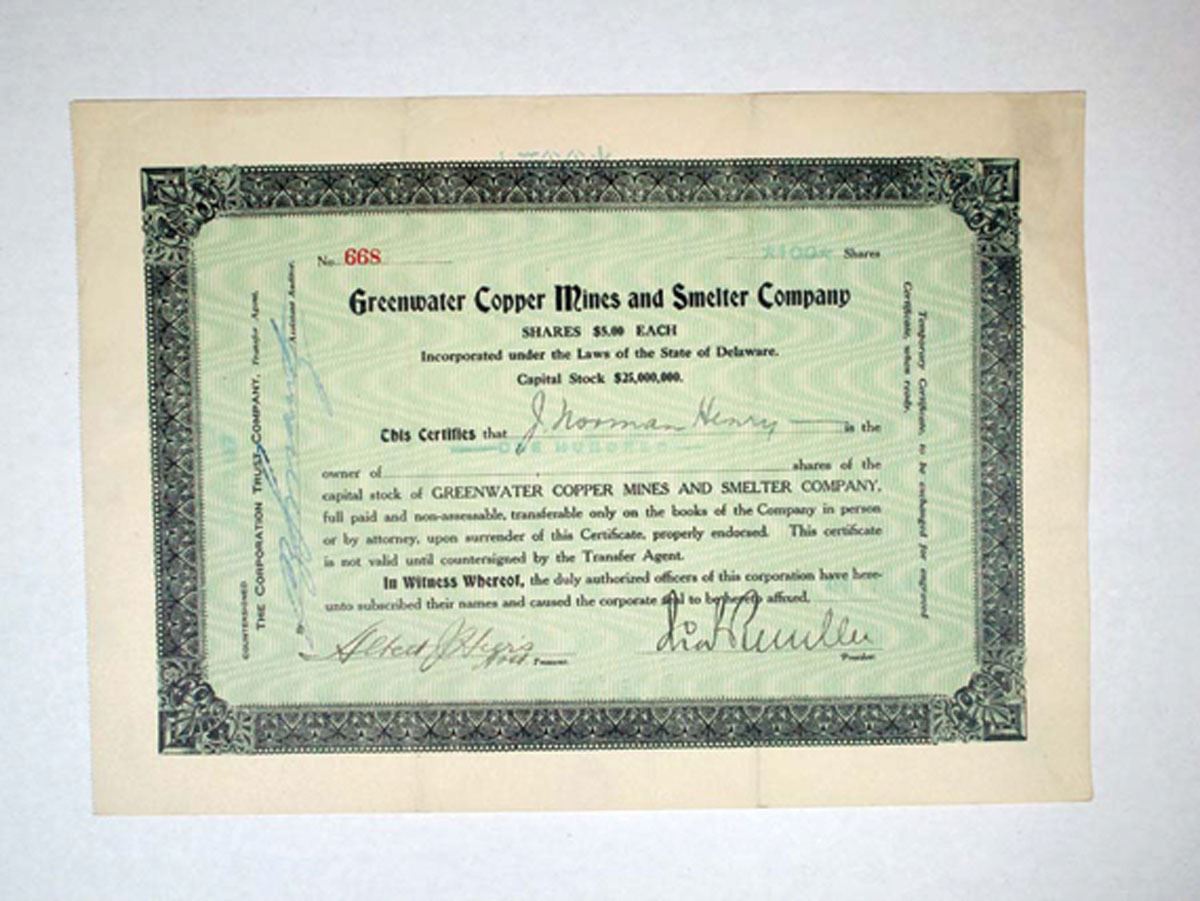 No. 668
*100* Shares
Greenwater Copper Mines and Smelter Company
SHARES $5.00 EACH
Incorporated under the Laws of the State of Delaware.
Capital Stock $25,000,000.
This Certifies that J. Norman Henry is the
ONE HUNDRED
owner of shares of the
capital stock of GREENWATER COPPER MINES AND SMELTER COMPANY,
full paid and non-assessable, transferable only on the books of the Company in person
or by attorney, upon surrender of this Certificate, properly endorsed. This certificate
is not valid until countersigned by the Transfer Agent.
In Witness Whereof, the duly authorized officers of this corporation have here-
unto subscribed their names and caused the corporate seal to be hereto affixed,
Albert J.
Asst Treasurer.
President.
COUNTERSIGNED
THE CORPORATION TRUST COMPANY, Transfer Agent,
By
Assistant Auditor.
Temporary Certificate, to be exchanged for engraved
Certificate, when ready.